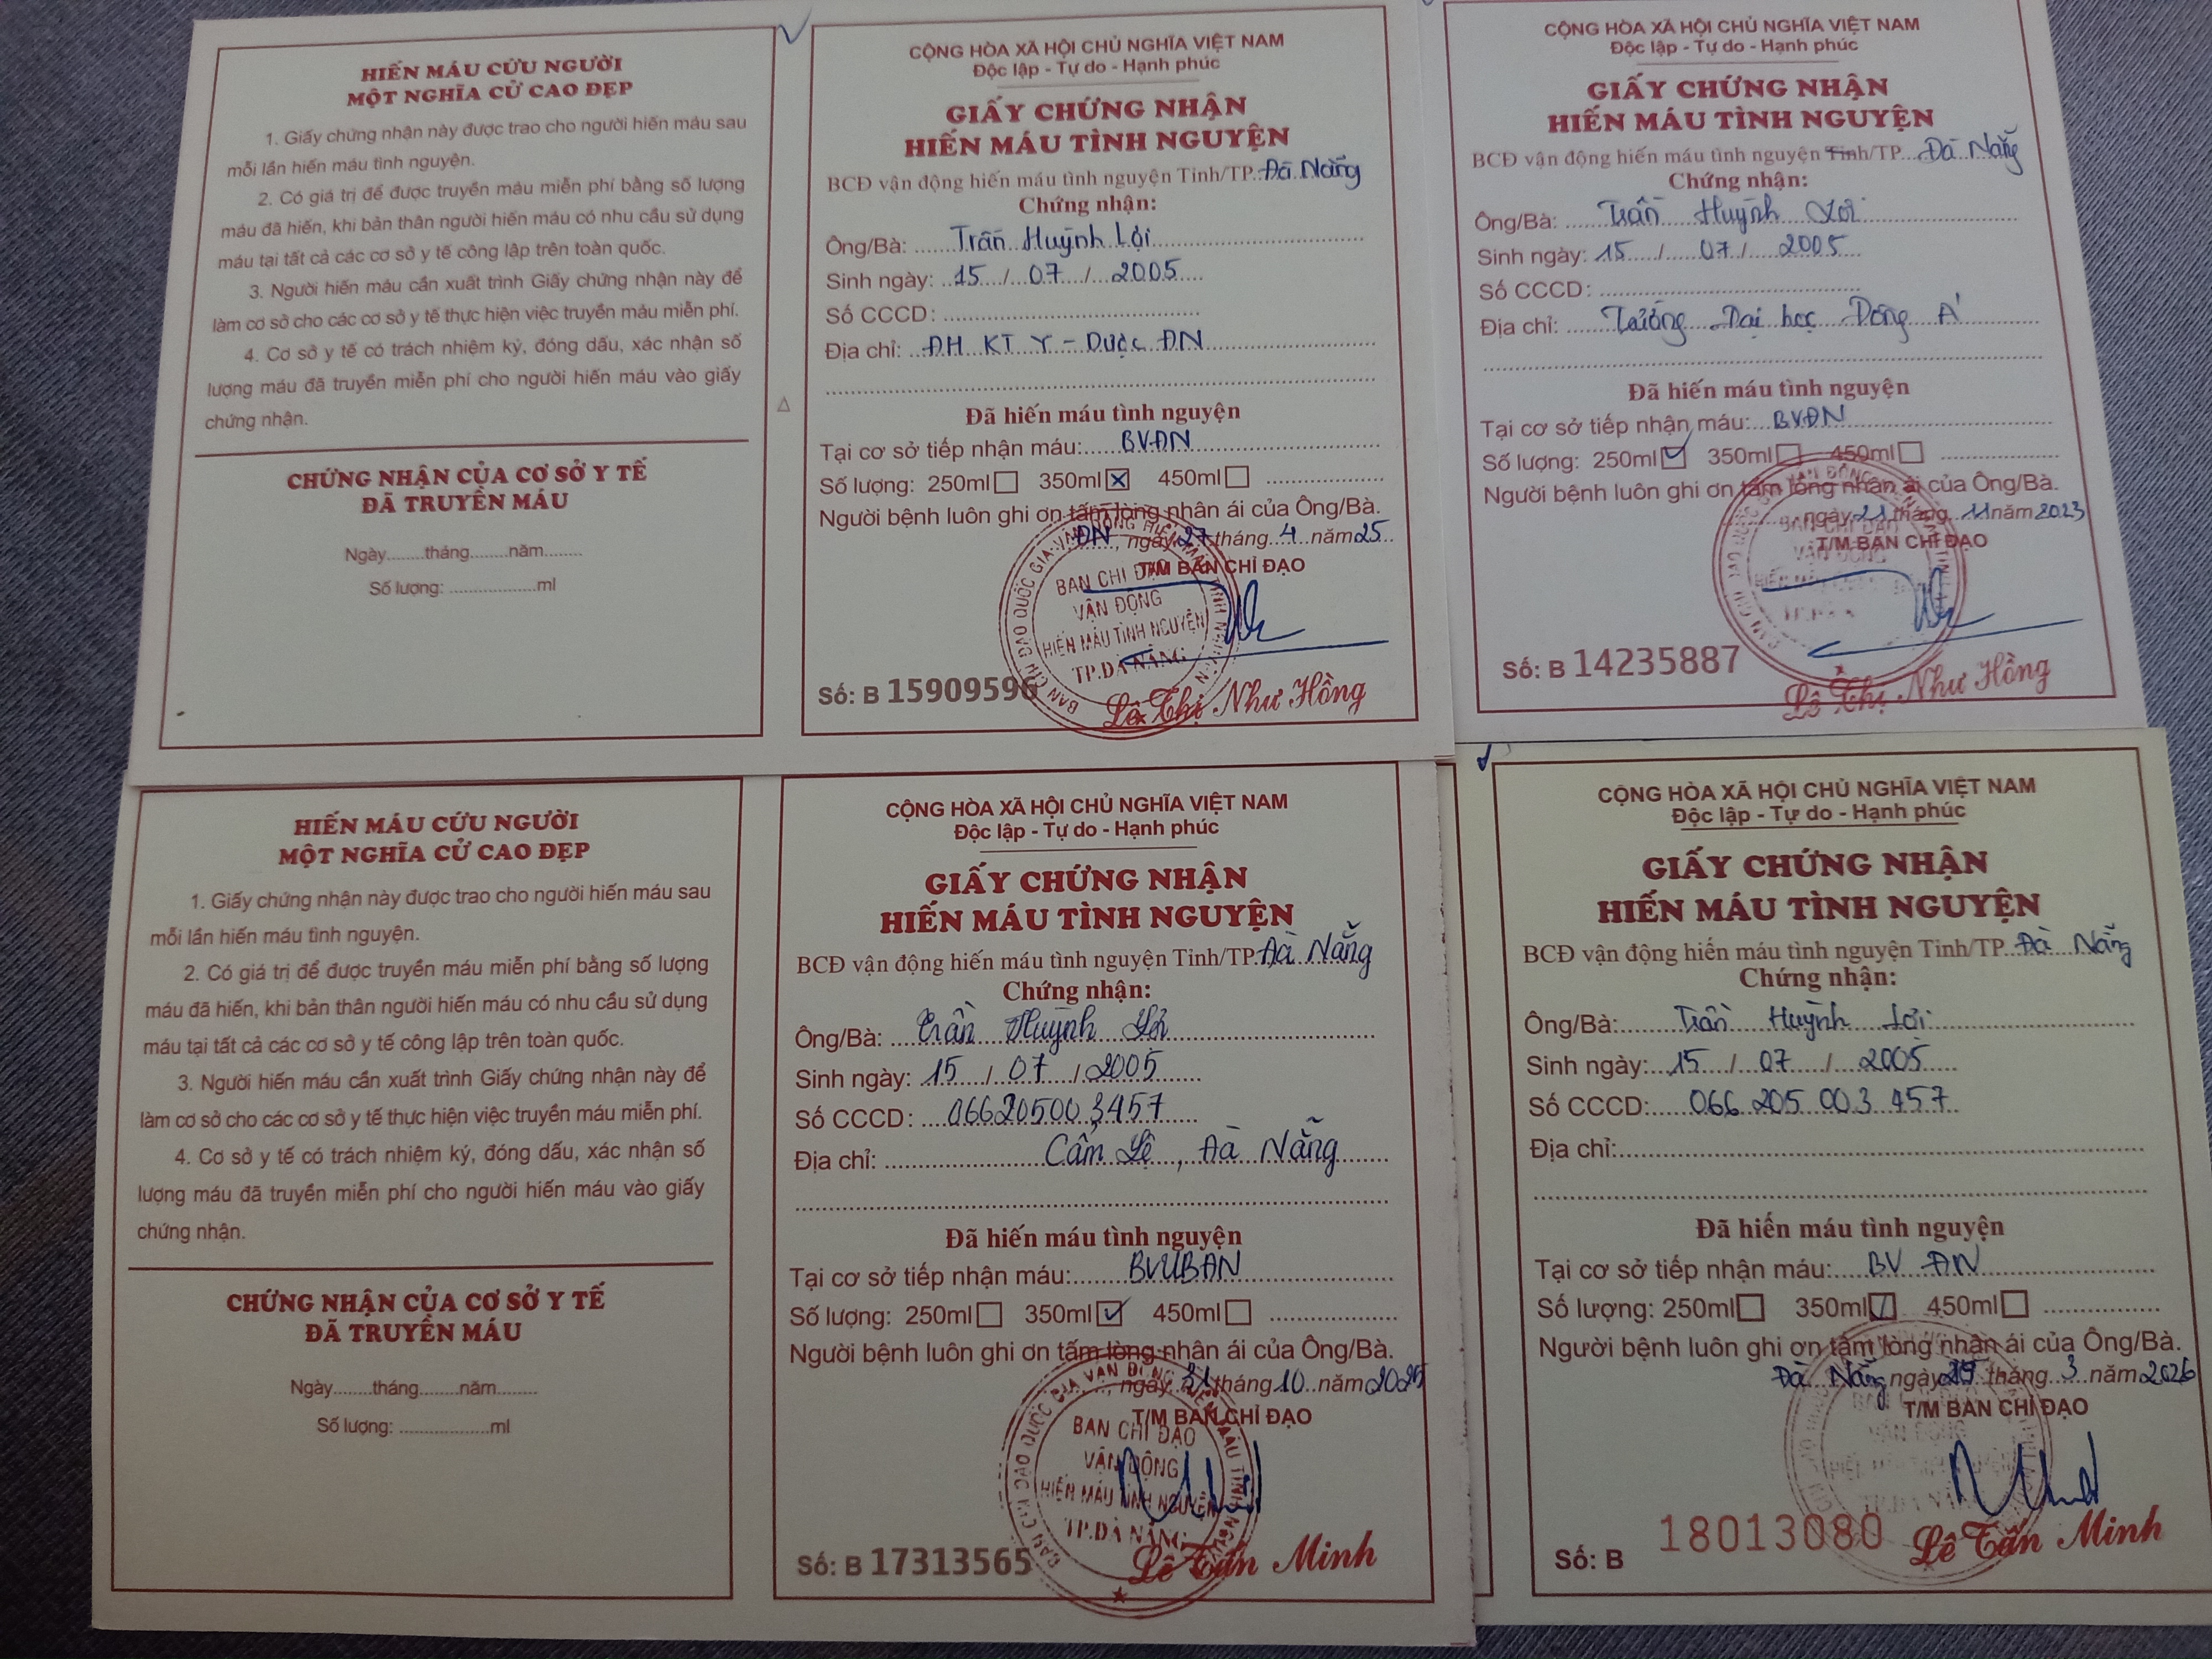 HIẾN MÁU CỨU NGƯỜI
MỘT NGHĨA CỬ CAO ĐẸP
1. Giấy chứng nhận này được trao cho người hiến máu sau
mỗi lần hiến máu tình nguyện.
2. Có giá trị để được truyền máu miễn phí bằng số lượng
máu đã hiến, khi bản thân người hiến máu có nhu cầu sử dụng
máu tại tất cả các cơ sở y tế công lập trên toàn quốc.
3. Người hiến máu cần xuất trình Giấy chứng nhận này để
làm cơ sở cho các cơ sở y tế thực hiện việc truyền máu miễn phí.
4. Cơ sở y tế có trách nhiệm ký, đóng dấu, xác nhận số
lượng máu đã truyền miễn phí cho người hiến máu vào giấy
chứng nhận.
CHỨNG NHẬN CỦA CƠ SỞ Y TẾ
ĐÃ TRUYỀN MÁU
Ngày........tháng........năm........
Số lượng: ...................ml
CỘNG HÒA XÃ HỘI CHỦ NGHĨA VIỆT NAM
Độc lập - Tự do - Hạnh phúc
GIẤY CHỨNG NHẬN
HIẾN MÁU TÌNH NGUYỆN
BCĐ vận động hiến máu tình nguyện Tỉnh/TP. Đà Nẵng
Chứng nhận:
Ông/Bà: Trần Huỳnh Lợi
Sinh ngày: 15 / 07 / 2005
Số CCCD:
Địa chỉ: ĐH KT Y - Dược ĐN
Đã hiến máu tình nguyện
Tại cơ sở tiếp nhận máu: BVĐN
Số lượng: 250ml 350ml 450ml
Người bệnh luôn ghi ơn tấm lòng nhân ái của Ông/Bà.
ĐN, ngày 27 tháng 4 năm 25
T/M BAN CHỈ ĐẠO
BAN CHỈ ĐẠO
VẬN ĐỘNG
HIẾN MÁU TÌNH NGUYỆN
TP.ĐÀ NẴNG
Số: B 15909596
Lê Thị Như Hồng
CỘNG HÒA XÃ HỘI CHỦ NGHĨA VIỆT NAM
Độc lập - Tự do - Hạnh phúc
GIẤY CHỨNG NHẬN
HIẾN MÁU TÌNH NGUYỆN
BCĐ vận động hiến máu tình nguyện Tỉnh/TP. Đà Nẵng
Chứng nhận:
Ông/Bà: Trần Huỳnh Lợi
Sinh ngày: 15 / 07 / 2005
Số CCCD:
Địa chỉ: Trường Đại học Đông Á
Đã hiến máu tình nguyện
Tại cơ sở tiếp nhận máu: BVĐN
Số lượng: 250ml 350ml 450ml
Người bệnh luôn ghi ơn tấm lòng nhân ái của Ông/Bà.
ngày 21 tháng 11 năm 2023
T/M BAN CHỈ ĐẠO
Số: B 14235887
Lê Thị Như Hồng
HIẾN MÁU CỨU NGƯỜI
MỘT NGHĨA CỬ CAO ĐẸP
1. Giấy chứng nhận này được trao cho người hiến máu sau
mỗi lần hiến máu tình nguyện.
2. Có giá trị để được truyền máu miễn phí bằng số lượng
máu đã hiến, khi bản thân người hiến máu có nhu cầu sử dụng
máu tại tất cả các cơ sở y tế công lập trên toàn quốc.
3. Người hiến máu cần xuất trình Giấy chứng nhận này để
làm cơ sở cho các cơ sở y tế thực hiện việc truyền máu miễn phí.
4. Cơ sở y tế có trách nhiệm ký, đóng dấu, xác nhận số
lượng máu đã truyền miễn phí cho người hiến máu vào giấy
chứng nhận.
CHỨNG NHẬN CỦA CƠ SỞ Y TẾ
ĐÃ TRUYỀN MÁU
Ngày........tháng........năm........
Số lượng: ...................ml
CỘNG HÒA XÃ HỘI CHỦ NGHĨA VIỆT NAM
Độc lập - Tự do - Hạnh phúc
GIẤY CHỨNG NHẬN
HIẾN MÁU TÌNH NGUYỆN
BCĐ vận động hiến máu tình nguyện Tỉnh/TP. Đà Nẵng
Chứng nhận:
Ông/Bà: Trần Huỳnh Lợi
Sinh ngày: 15 / 07 / 2005
Số CCCD: 066205003457
Địa chỉ: Cẩm Lệ, Đà Nẵng
Đã hiến máu tình nguyện
Tại cơ sở tiếp nhận máu: BVUBĐN
Số lượng: 250ml 350ml 450ml
Người bệnh luôn ghi ơn tấm lòng nhân ái của Ông/Bà.
ngày 31 tháng 10 năm 2025
T/M BAN CHỈ ĐẠO
BAN CHỈ ĐẠO
VẬN ĐỘNG
HIẾN MÁU TÌNH NGUYỆN
TP.ĐÀ NẴNG
Số: B 17313565
Lê Tấn Minh
CỘNG HÒA XÃ HỘI CHỦ NGHĨA VIỆT NAM
Độc lập - Tự do - Hạnh phúc
GIẤY CHỨNG NHẬN
HIẾN MÁU TÌNH NGUYỆN
BCĐ vận động hiến máu tình nguyện Tỉnh/TP. Đà Nẵng
Chứng nhận:
Ông/Bà: Trần Huỳnh Lợi
Sinh ngày: 15 / 07 / 2005
Số CCCD: 066 205 003 457
Địa chỉ:
Đã hiến máu tình nguyện
Tại cơ sở tiếp nhận máu: BV ĐN
Số lượng: 250ml 350ml 450ml
Người bệnh luôn ghi ơn tấm lòng nhân ái của Ông/Bà.
Đà Nẵng ngày tháng 3 năm 2026
T/M BAN CHỈ ĐẠO
Số: B 18013080
Lê Tấn Minh